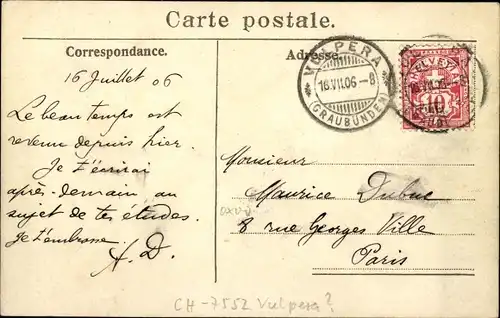 Carte postale.
Correspondance.
Adresse.
VULPERA
16.VII.06-8
(GRAUBÜNDEN)
HELVETIA
10
16 Juillet 06
Le beau temps est
revenu depuis hier.
Je t'écrirai
après-demain au
sujet de tes études.
Je t'embrasse.
A. D.
Monsieur
Maurice Dubuc
8 rue Georges Ville
Paris
CH-7552 Vulpera?